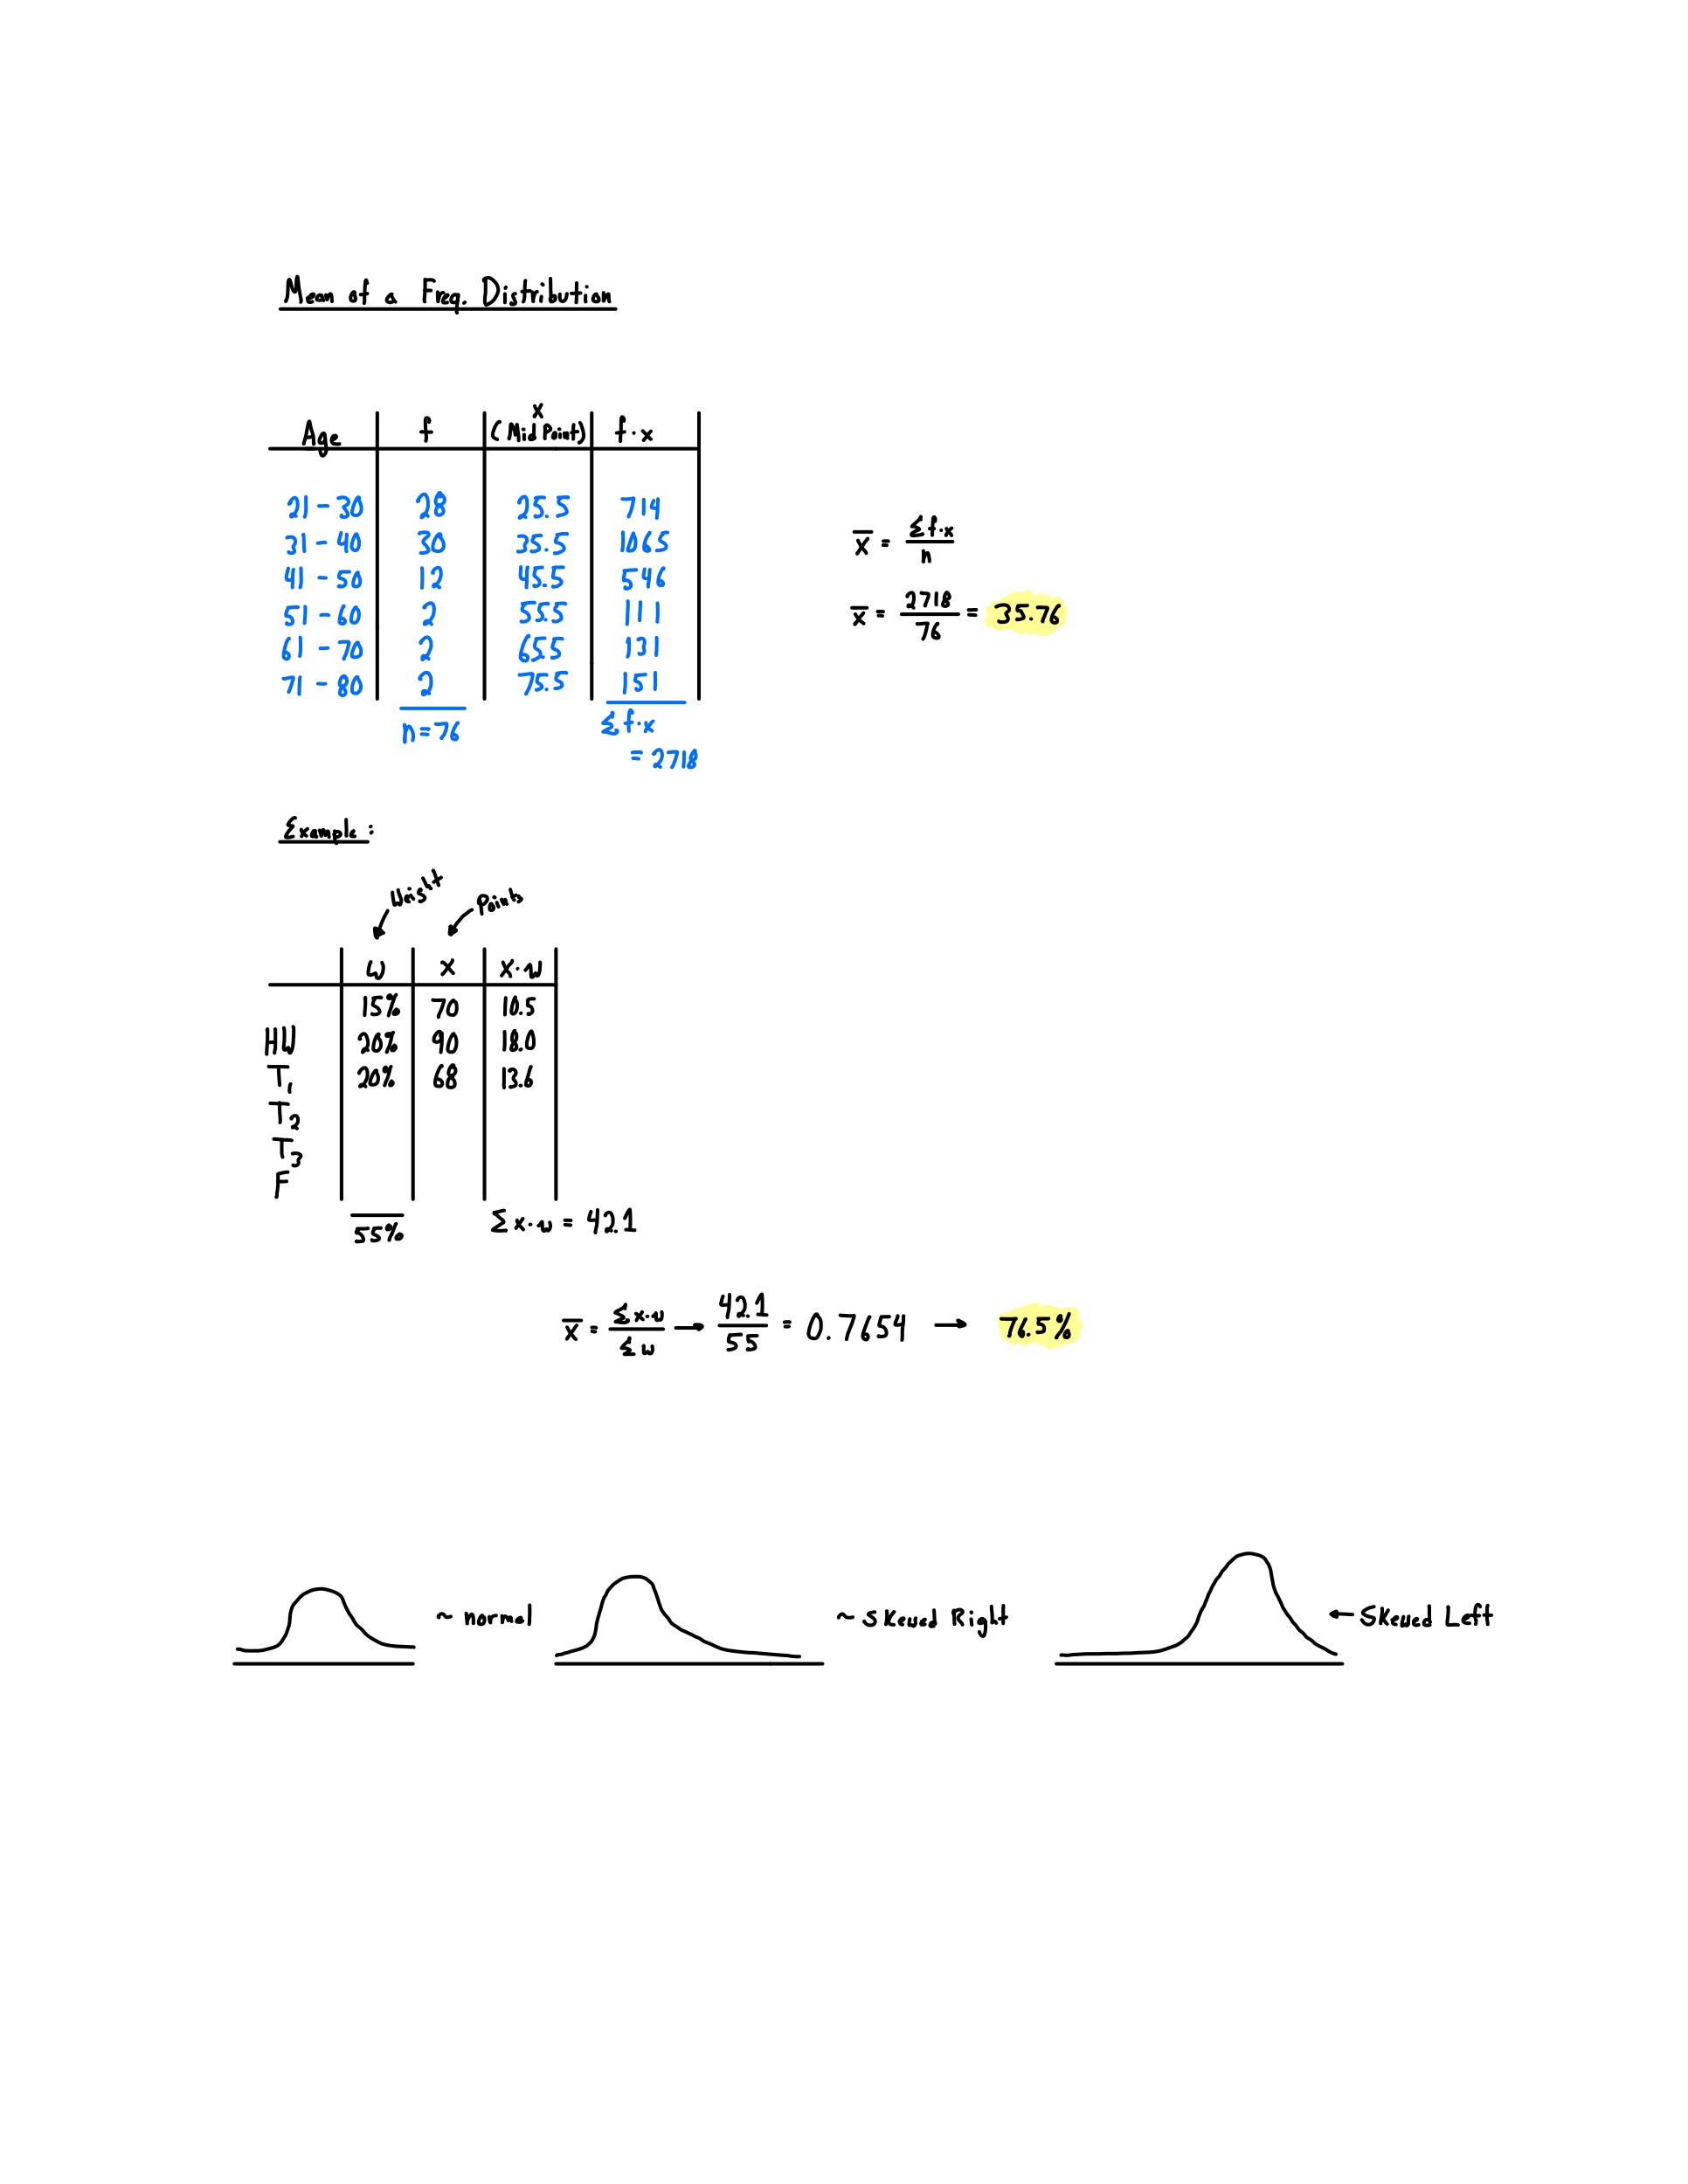 Mean of a Freq. Distribution
Age f x (Mid Point) f·x
21-30 28 25.5 714
31-40 30 35.5 1065
41-50 12 45.5 546
51-60 2 55.5 111
61-70 2 65.5 131
71-80 2 75.5 151
n=76 Σf·x
= 2718
x̄ = Σf·x / n
x̄ = 2718 / 76 = 35.76
Example:
Weight Points
w x x·w
15% 70 10.5
HW 20% 90 18.0
T₁ 20% 68 13.6
T₂
T₃
F
55% Σx·w = 42.1
x̄ = Σx·w / Σw → 42.1 / 55 = 0.7654 → 76.5%
~ normal
~ Skewed Right
← Skewed Left